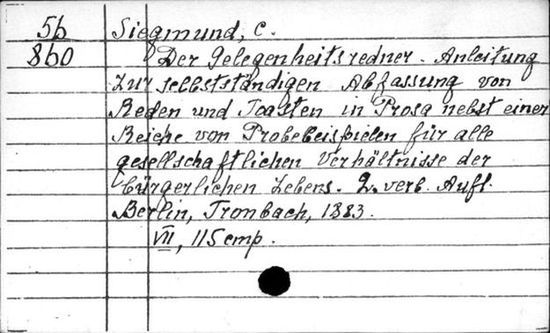 56 Siegmund, C.
860 Der Gelegenheitsredner. Anleitung
zur selbstständigen Abfassung von
Reden und Toasten in Prosa nebst einer
Reihe von Probebeispielen für alle
gesellschaftlichen Verhältnisse der
bürgerlichen Lebens. 2. verb. Aufl.
Berlin, Trombach, 1883.
VII, 115 стр.